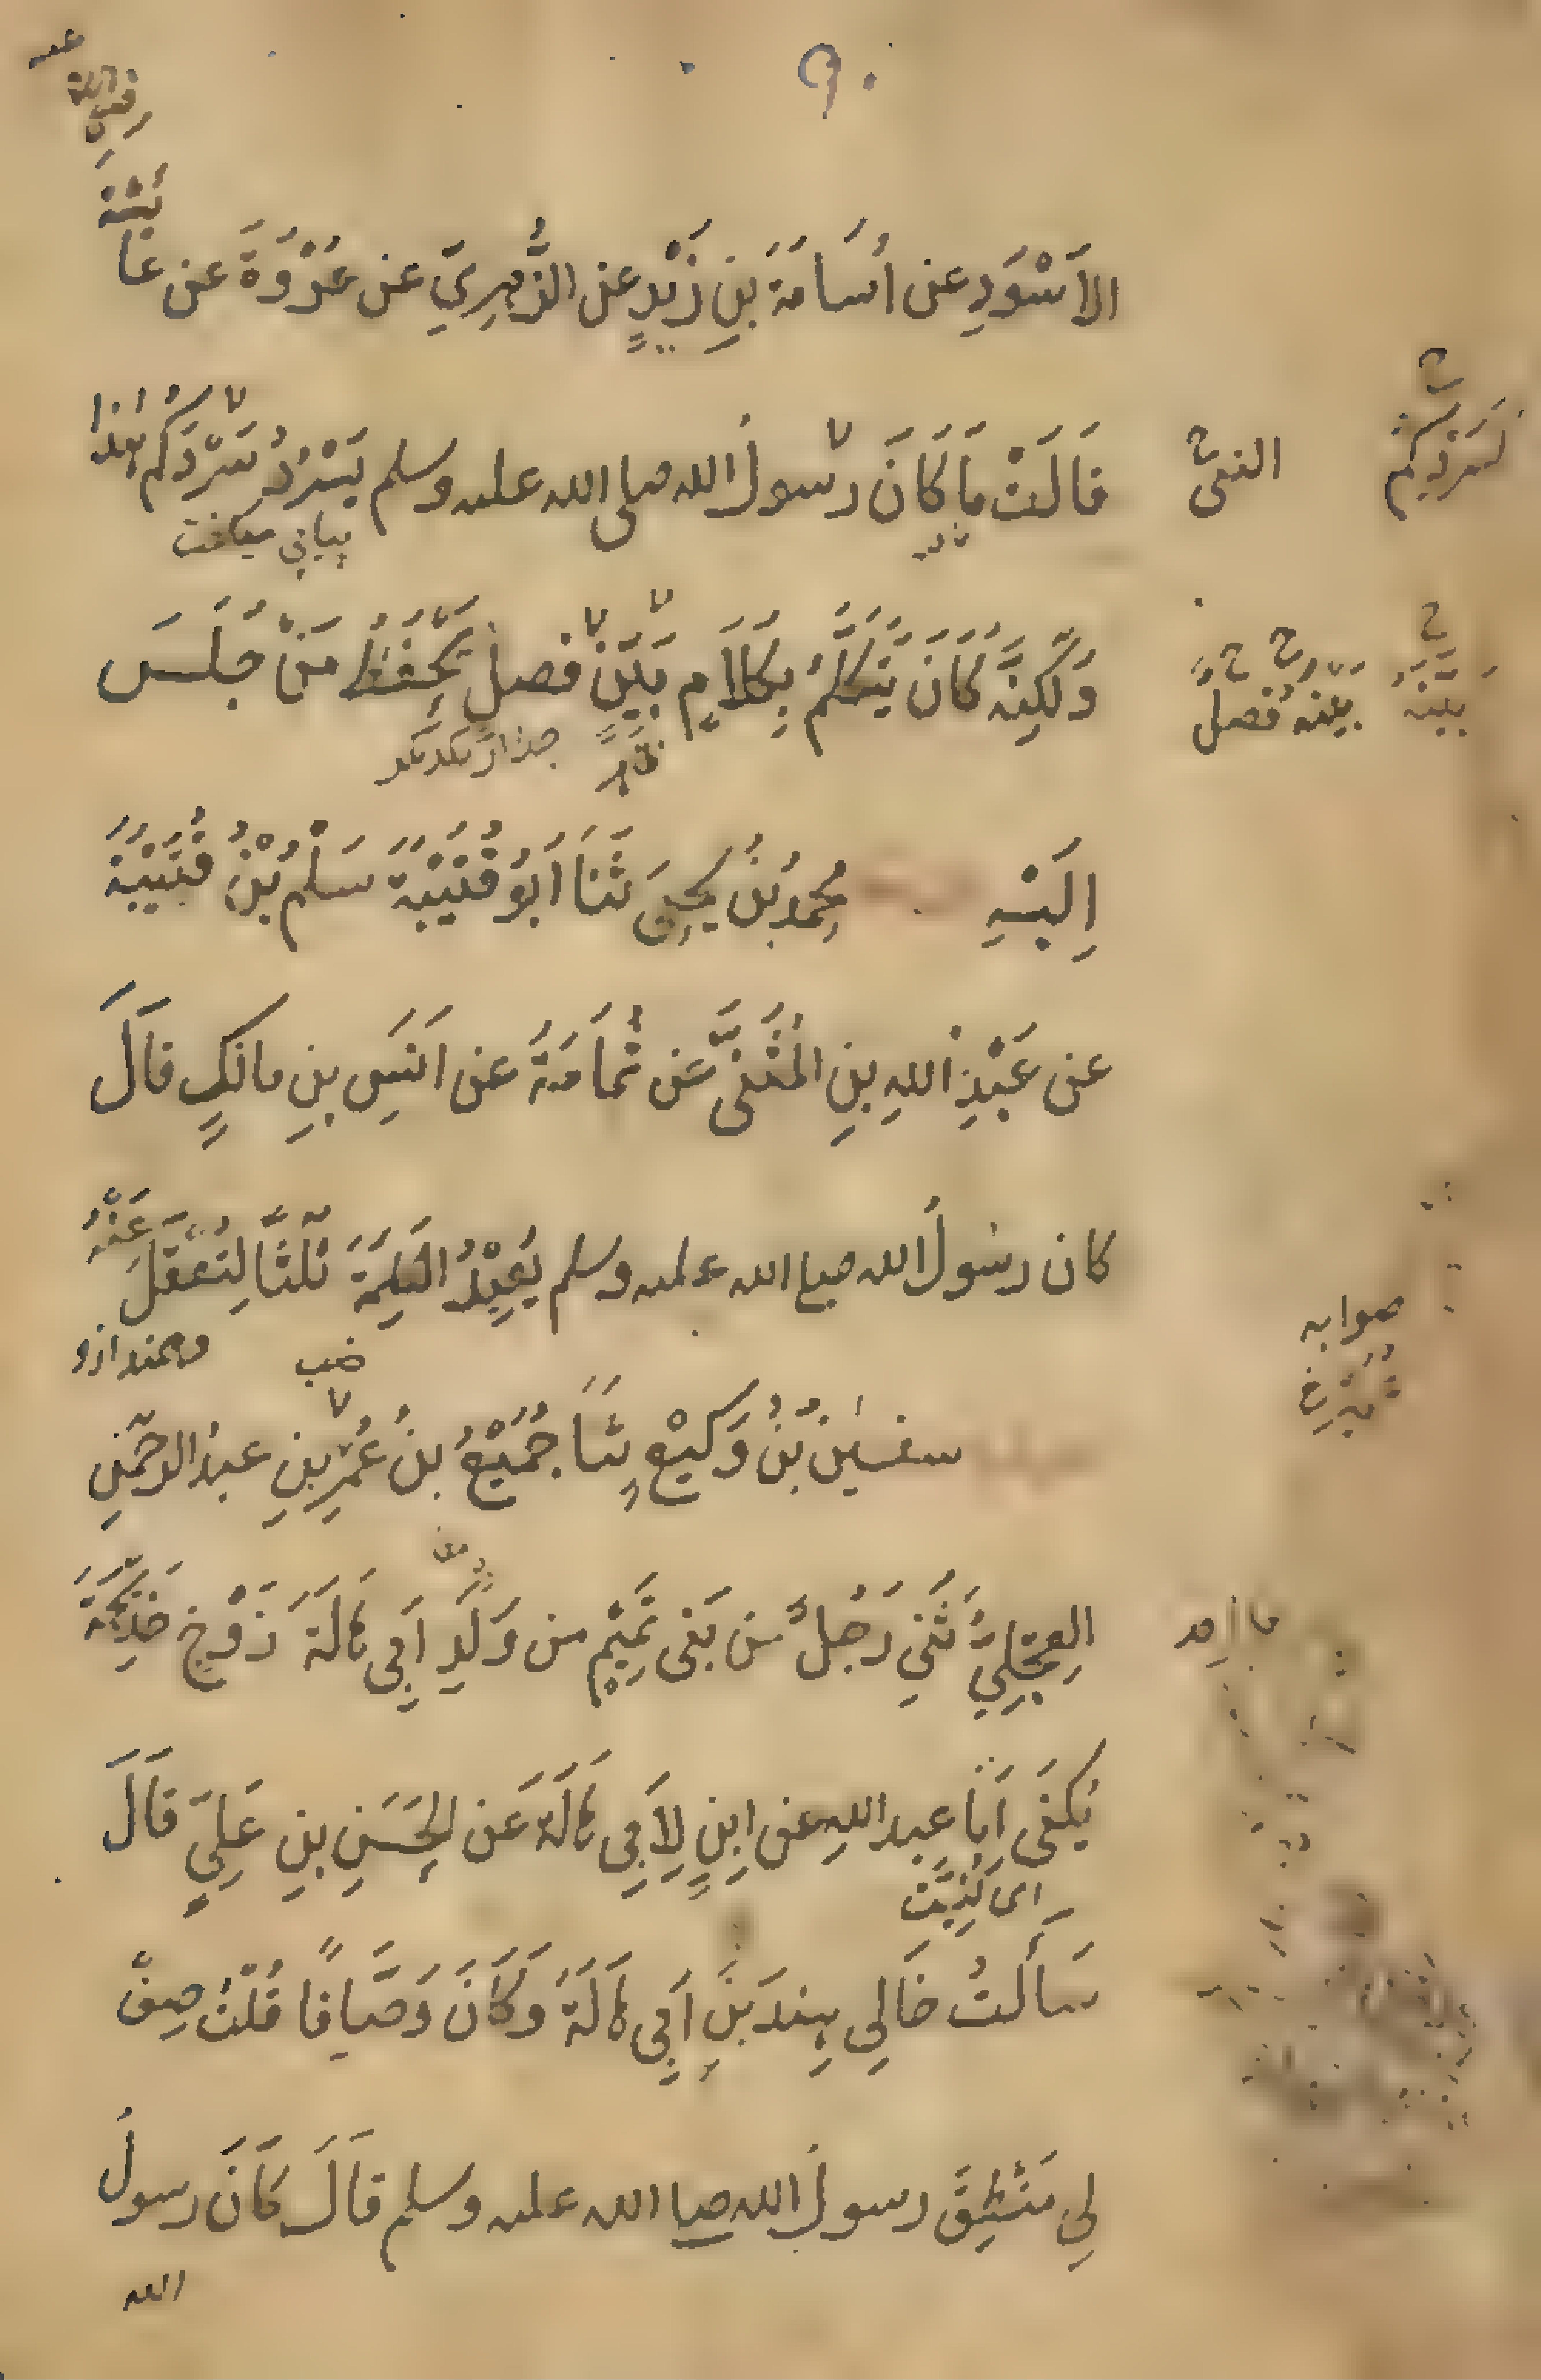 ٩٠
الاَسْوَدِ عن اُسَامَةَ بنِ زَيْدٍ عن الزُّهرِيِّ عن عُرْوَةَ عن عَائشة رضي الله عنه
قَالَتْ مَا كَانَ رسولُ الله صلى الله عليه وسلم يَسْرُدُ سَرْدَكُم هذا
النبي
كسَرْدِكُم
وَلٰكِنَّهُ كَانَ يَتَكَلَّمُ بِكَلَامٍ بَيِّنٍ فصلٍ يَحْفَظُهُ مَنْ جَلَسَ
ظاهر
بيّنه فصل
بيّنه
اِلَيْهِ محمدُ بنُ يحيى ثَنَا اَبُو قُتَيْبَةَ سَلْمُ بْنُ قُتَيْبَةَ
عن عَبْدِ اللهِ بنِ المُثَنّى عَن ثُمَامَةَ عن اَنَسِ بنِ مالكٍ قَالَ
كان رسُولُ الله صلى الله عليه وسلم يُعِيْدُ الكَلِمَةَ ثَلٰثًا لِتُعْقَلَ عَنْهُ
صوابه
سفيٰنُ بْنُ وَكِيْعٍ ثنَا جُمَيْعُ بنُ عُمَرَ بنِ عبدُ الرحمٰنِ
العِجْلِيُّ ثَنِي رَجُلٌ من بَنى تَمِيْمٍ من وَلَدِ اَبِى هَالَةَ زَوْجِ خَدِيْجَةَ
يُكنَى اَبَا عبدِ اللهِ عن ابنٍ لِاَبِى هَالَةَ عَن الحَسَنِ بنِ عَلِيٍّ قَالَ
سَأَلتُ خَالِى هِندَ بنَ اَبِى هَالَةَ وَكَانَ وَصَّافًا قُلْتُ صِفْ
لِى مَنْطِقَ رسولِ الله صلى الله عليه وسلم قَالَ كَانَ رسولُ
الله